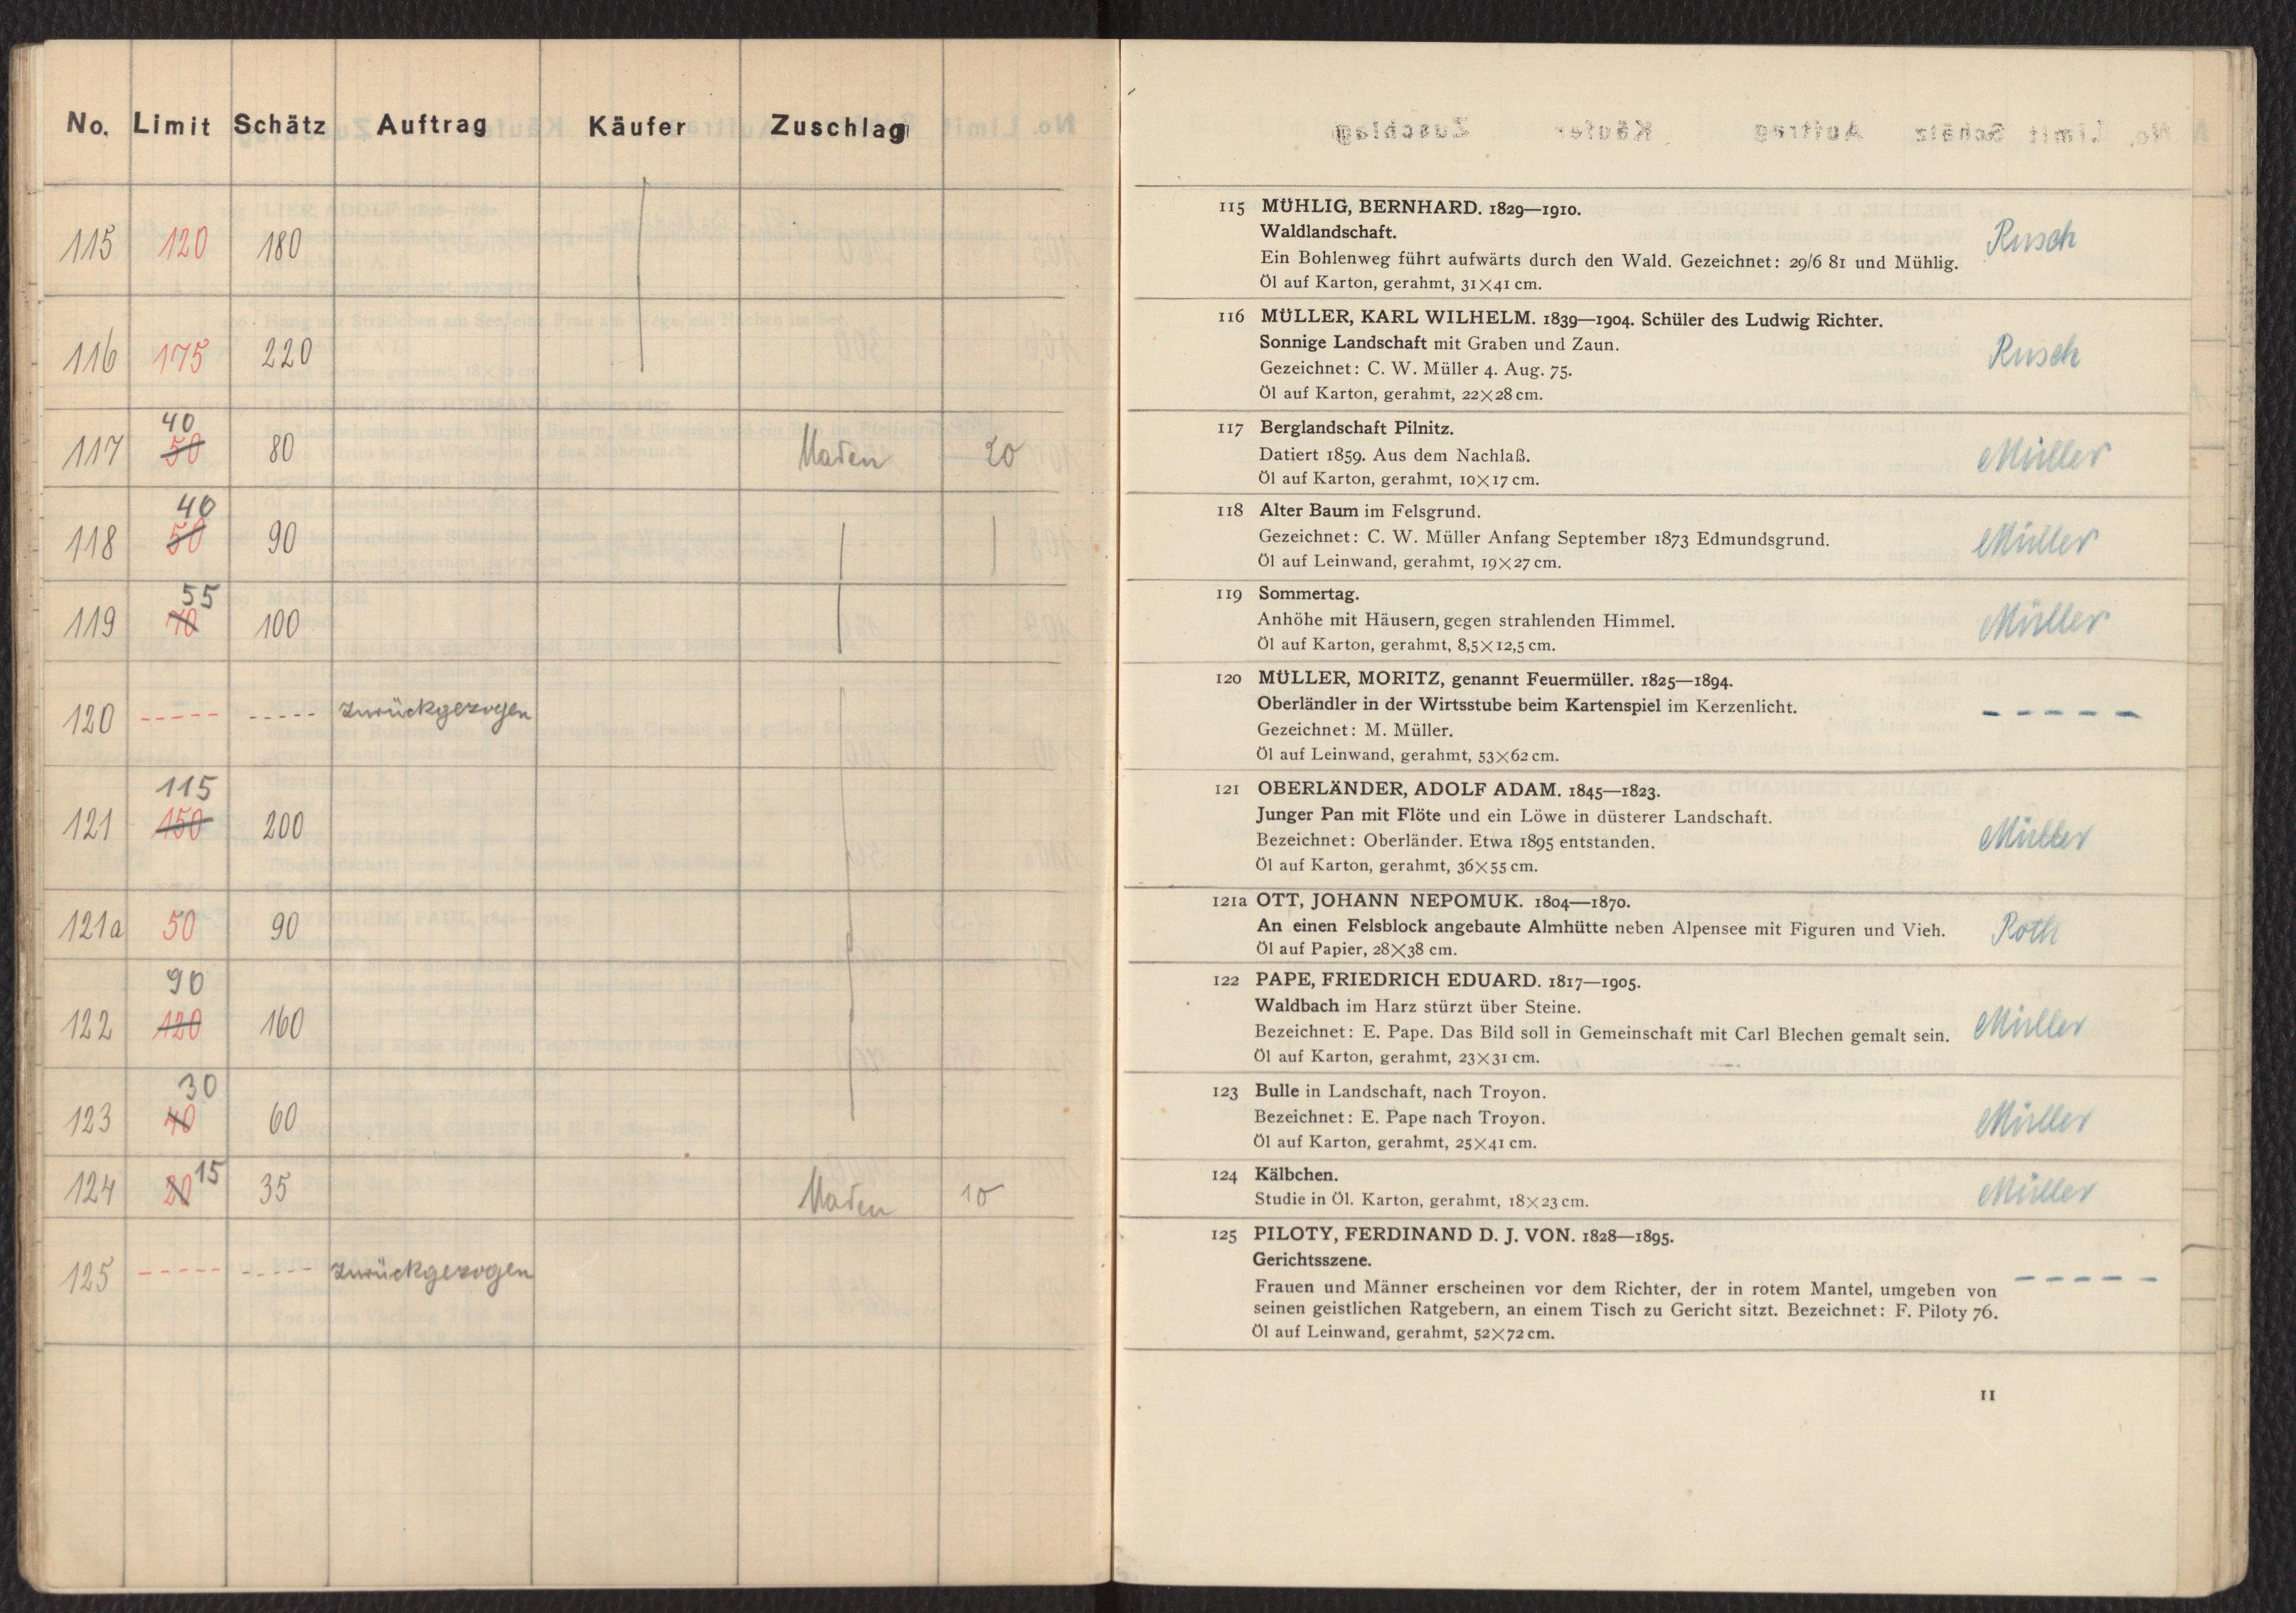 No. Limit Schätz Auftrag Käufer Zuschlag
115 120 180
116 175 220
40
117 50 80 20
40
118 50 90
55
119 70 100
120 ----- ----- zurückgezogen
115
121 150 200
121a 50 90
90
122 120 160
30
123 40 60
15
124 20 35 10
125 ----- ----- zurückgezogen
115 MÜHLIG, BERNHARD. 1829—1910.
Waldlandschaft.
Ein Bohlenweg führt aufwärts durch den Wald. Gezeichnet: 29/6 81 und Mühlig.
Öl auf Karton, gerahmt, 31×41 cm.
Rusch
116 MÜLLER, KARL WILHELM. 1839—1904. Schüler des Ludwig Richter.
Sonnige Landschaft mit Graben und Zaun.
Gezeichnet: C. W. Müller 4. Aug. 75.
Öl auf Karton, gerahmt, 22×28 cm.
Rusch
117 Berglandschaft Pilnitz.
Datiert 1859. Aus dem Nachlaß.
Öl auf Karton, gerahmt, 10×17 cm.
Müller
118 Alter Baum im Felsgrund.
Gezeichnet: C. W. Müller Anfang September 1873 Edmundsgrund.
Öl auf Leinwand, gerahmt, 19×27 cm.
Müller
119 Sommertag.
Anhöhe mit Häusern, gegen strahlenden Himmel.
Öl auf Karton, gerahmt, 8,5×12,5 cm.
Müller
120 MÜLLER, MORITZ, genannt Feuermüller. 1825—1894.
Oberländler in der Wirtsstube beim Kartenspiel im Kerzenlicht.
Gezeichnet: M. Müller.
Öl auf Leinwand, gerahmt, 53×62 cm.
-----
121 OBERLÄNDER, ADOLF ADAM. 1845—1823.
Junger Pan mit Flöte und ein Löwe in düsterer Landschaft.
Bezeichnet: Oberländer. Etwa 1895 entstanden.
Öl auf Karton, gerahmt, 36×55 cm.
Müller
121a OTT, JOHANN NEPOMUK. 1804—1870.
An einen Felsblock angebaute Almhütte neben Alpensee mit Figuren und Vieh.
Öl auf Papier, 28×38 cm.
Roth
122 PAPE, FRIEDRICH EDUARD. 1817—1905.
Waldbach im Harz stürzt über Steine.
Bezeichnet: E. Pape. Das Bild soll in Gemeinschaft mit Carl Blechen gemalt sein.
Öl auf Karton, gerahmt, 23×31 cm.
Müller
123 Bulle in Landschaft, nach Troyon.
Bezeichnet: E. Pape nach Troyon.
Öl auf Karton, gerahmt, 25×41 cm.
Müller
124 Kälbchen.
Studie in Öl. Karton, gerahmt, 18×23 cm.
Müller
125 PILOTY, FERDINAND D. J. VON. 1828—1895.
Gerichtsszene.
Frauen und Männer erscheinen vor dem Richter, der in rotem Mantel, umgeben von
seinen geistlichen Ratgebern, an einem Tisch zu Gericht sitzt. Bezeichnet: F. Piloty 76.
Öl auf Leinwand, gerahmt, 52×72 cm.
-----
11